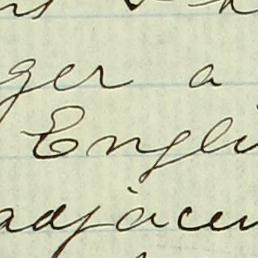 ger a
Engli
adjacen